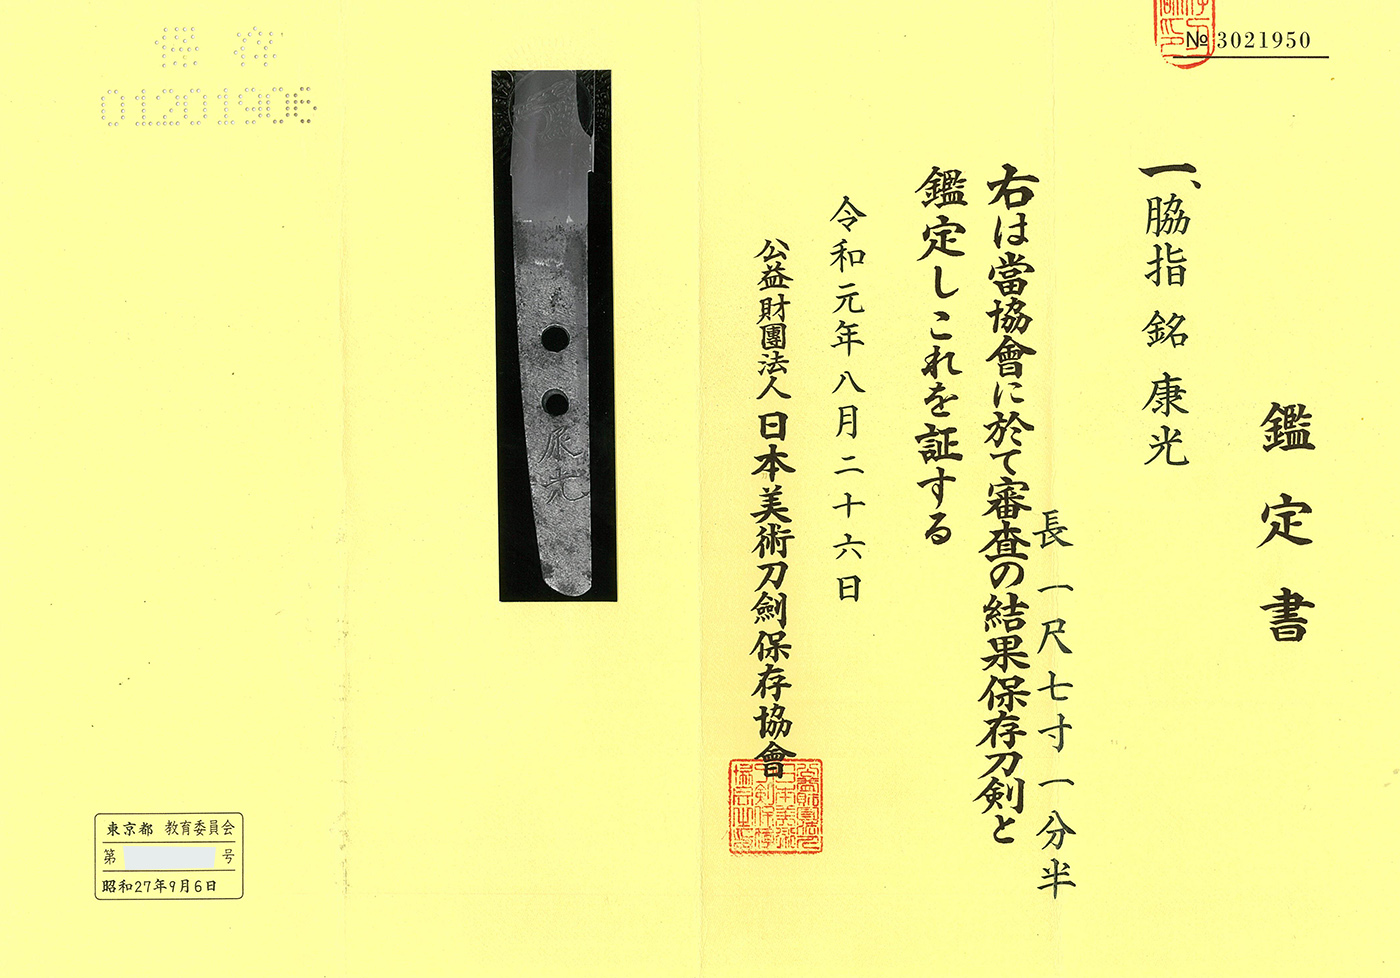 № 3021950
鑑定書
一、脇指 銘 康光
長 一尺七寸一分半
右は當協會に於て審査の結果保存刀剣と
鑑定しこれを証する
令和元年八月二十六日
公益財團法人 日本美術刀劍保存協會
康光
保存
01201906
東京都 教育委員会
第 号
昭和27年9月6日